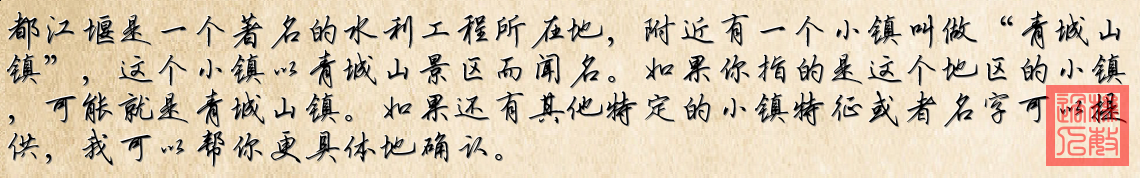 都江堰是一个著名的水利工程所在地，附近有一个小镇叫做“青城山
镇”，这个小镇以青城山景区而闻名。如果你指的是这个地区的小镇
，可能就是青城山镇。如果还有其他特定的小镇特征或者名字可以提
供，我可以帮你更具体地确认。